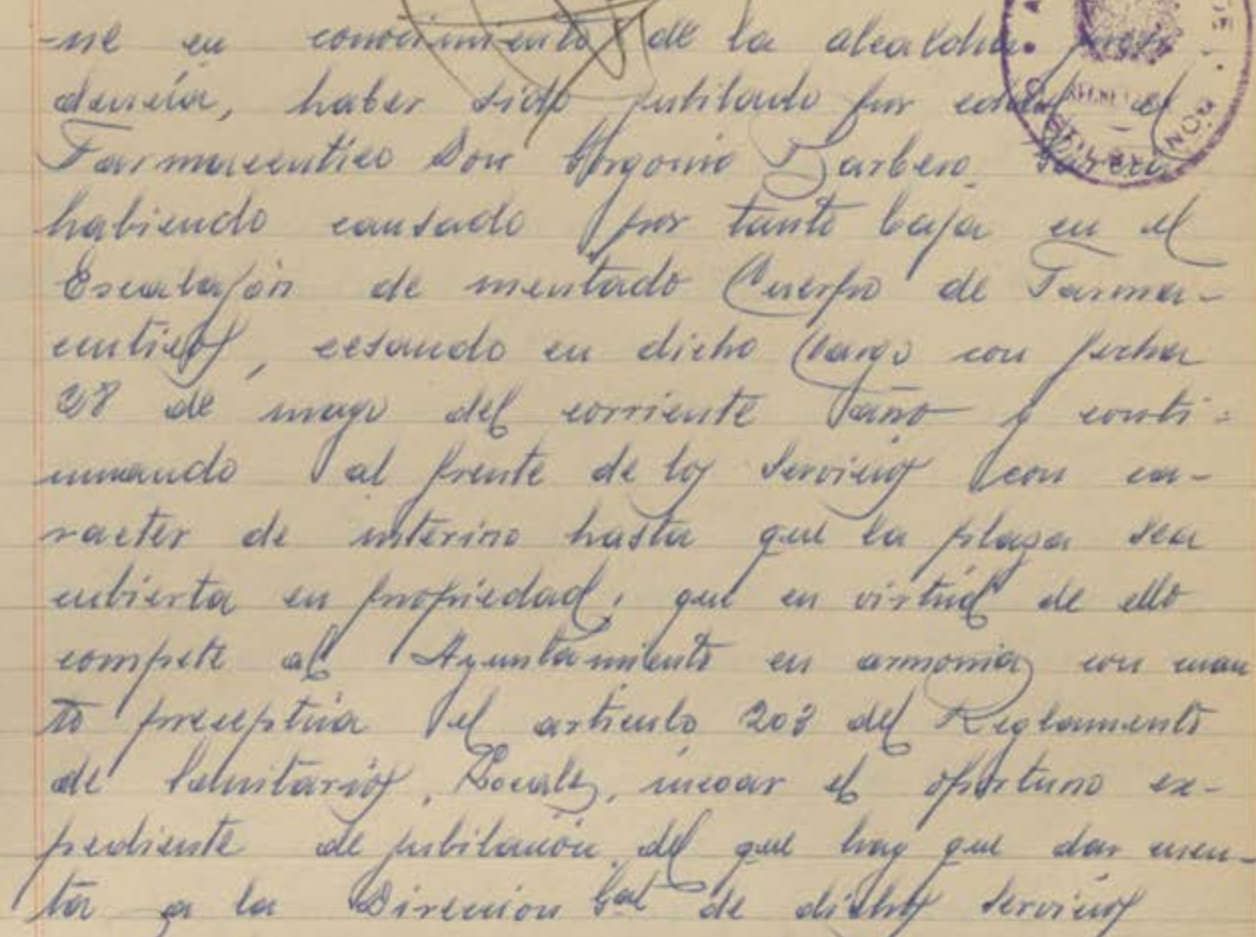 -ne en conocimiento de la alcaldia presi-
dencia, haber sido jubilado por edad el
Farmaceutico Don Gorgonio Barbero
habiendo causado por tanto baja en el
Escalafón de mentado Cuerpo de Farma-
ceuticos, cesando en dicho Cargo con fecha
28 de mayo del corriente año y conti-
nuando al frente de los servicios con ca-
racter de interino hasta que la plaza sea
cubierta en propiedad; que en virtud de ello
compete al Ayuntamiento en armonia con cuan
to preceptúa el articulo 203 del Reglamento
de Sanitarios, Locales, incoar el oportuno ex-
pediente de jubilación, del que hay que dar cuen-
ta a la Direccion Gal de dichos servicios